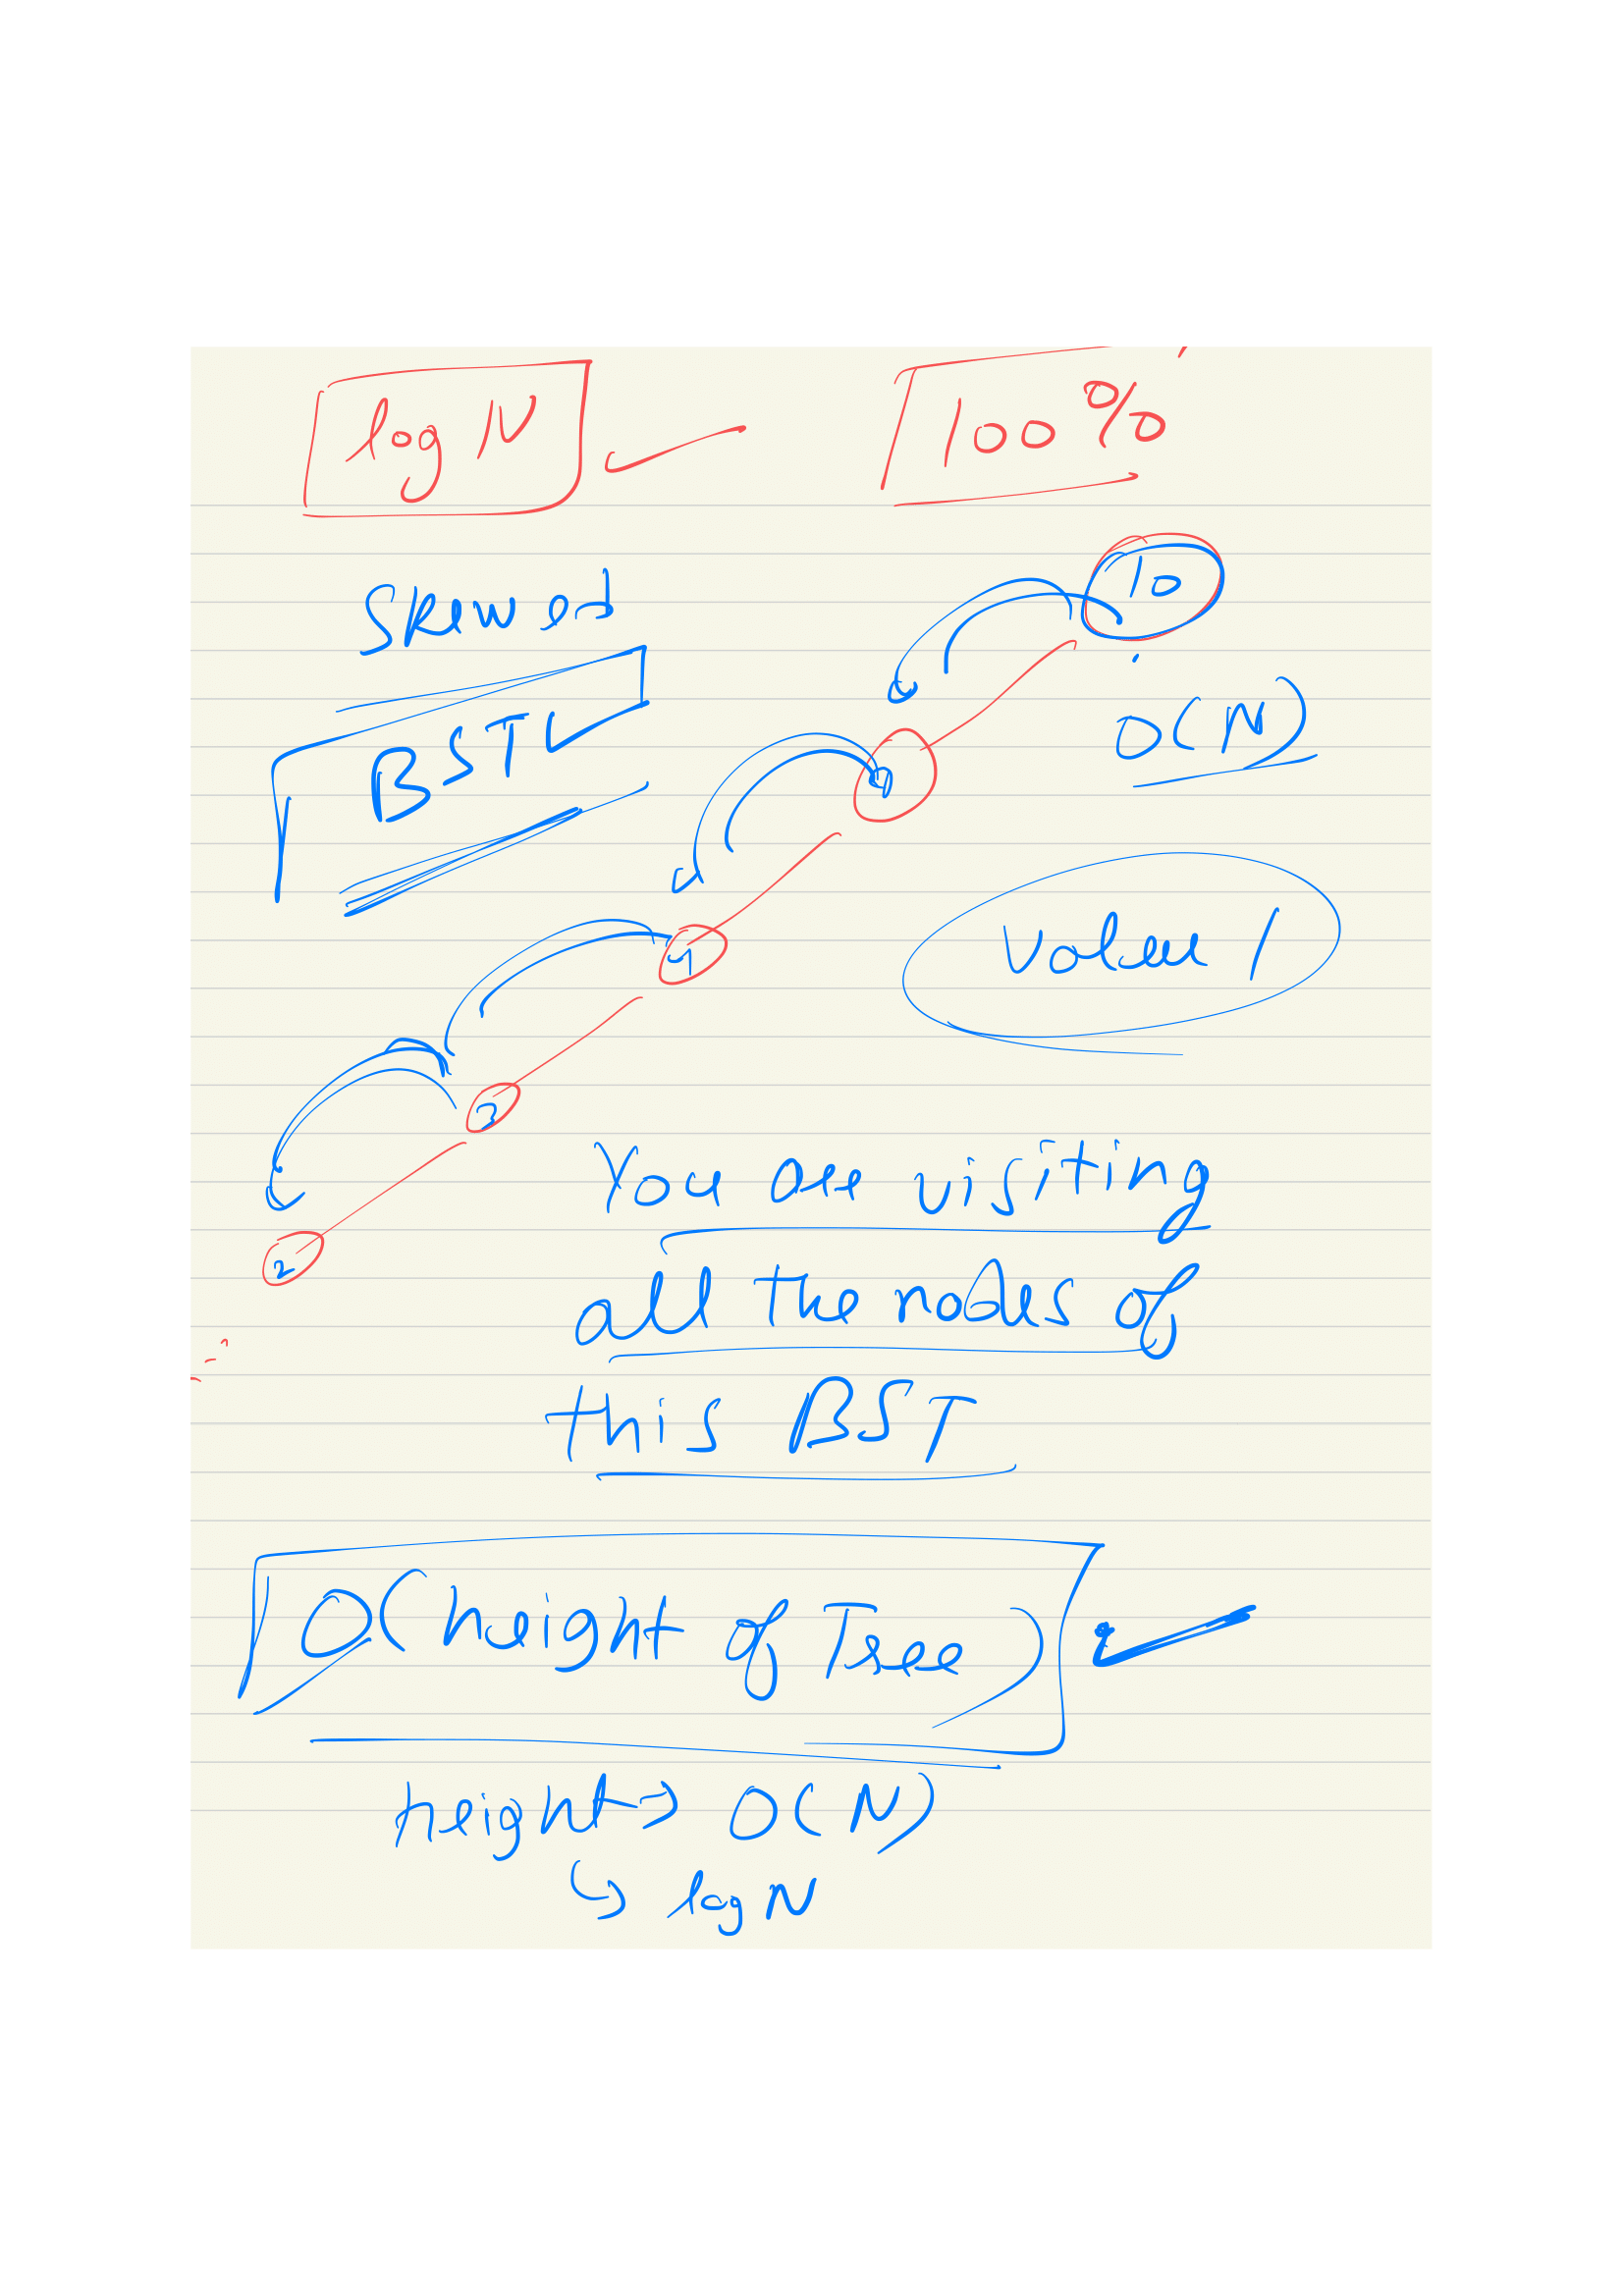 log N 100%
Skewed
10
BST
O(N)
value 1
3
You are visiting
2
all the nodes of
this BST
O(height of Tree)
height → O(N)
↳ log N